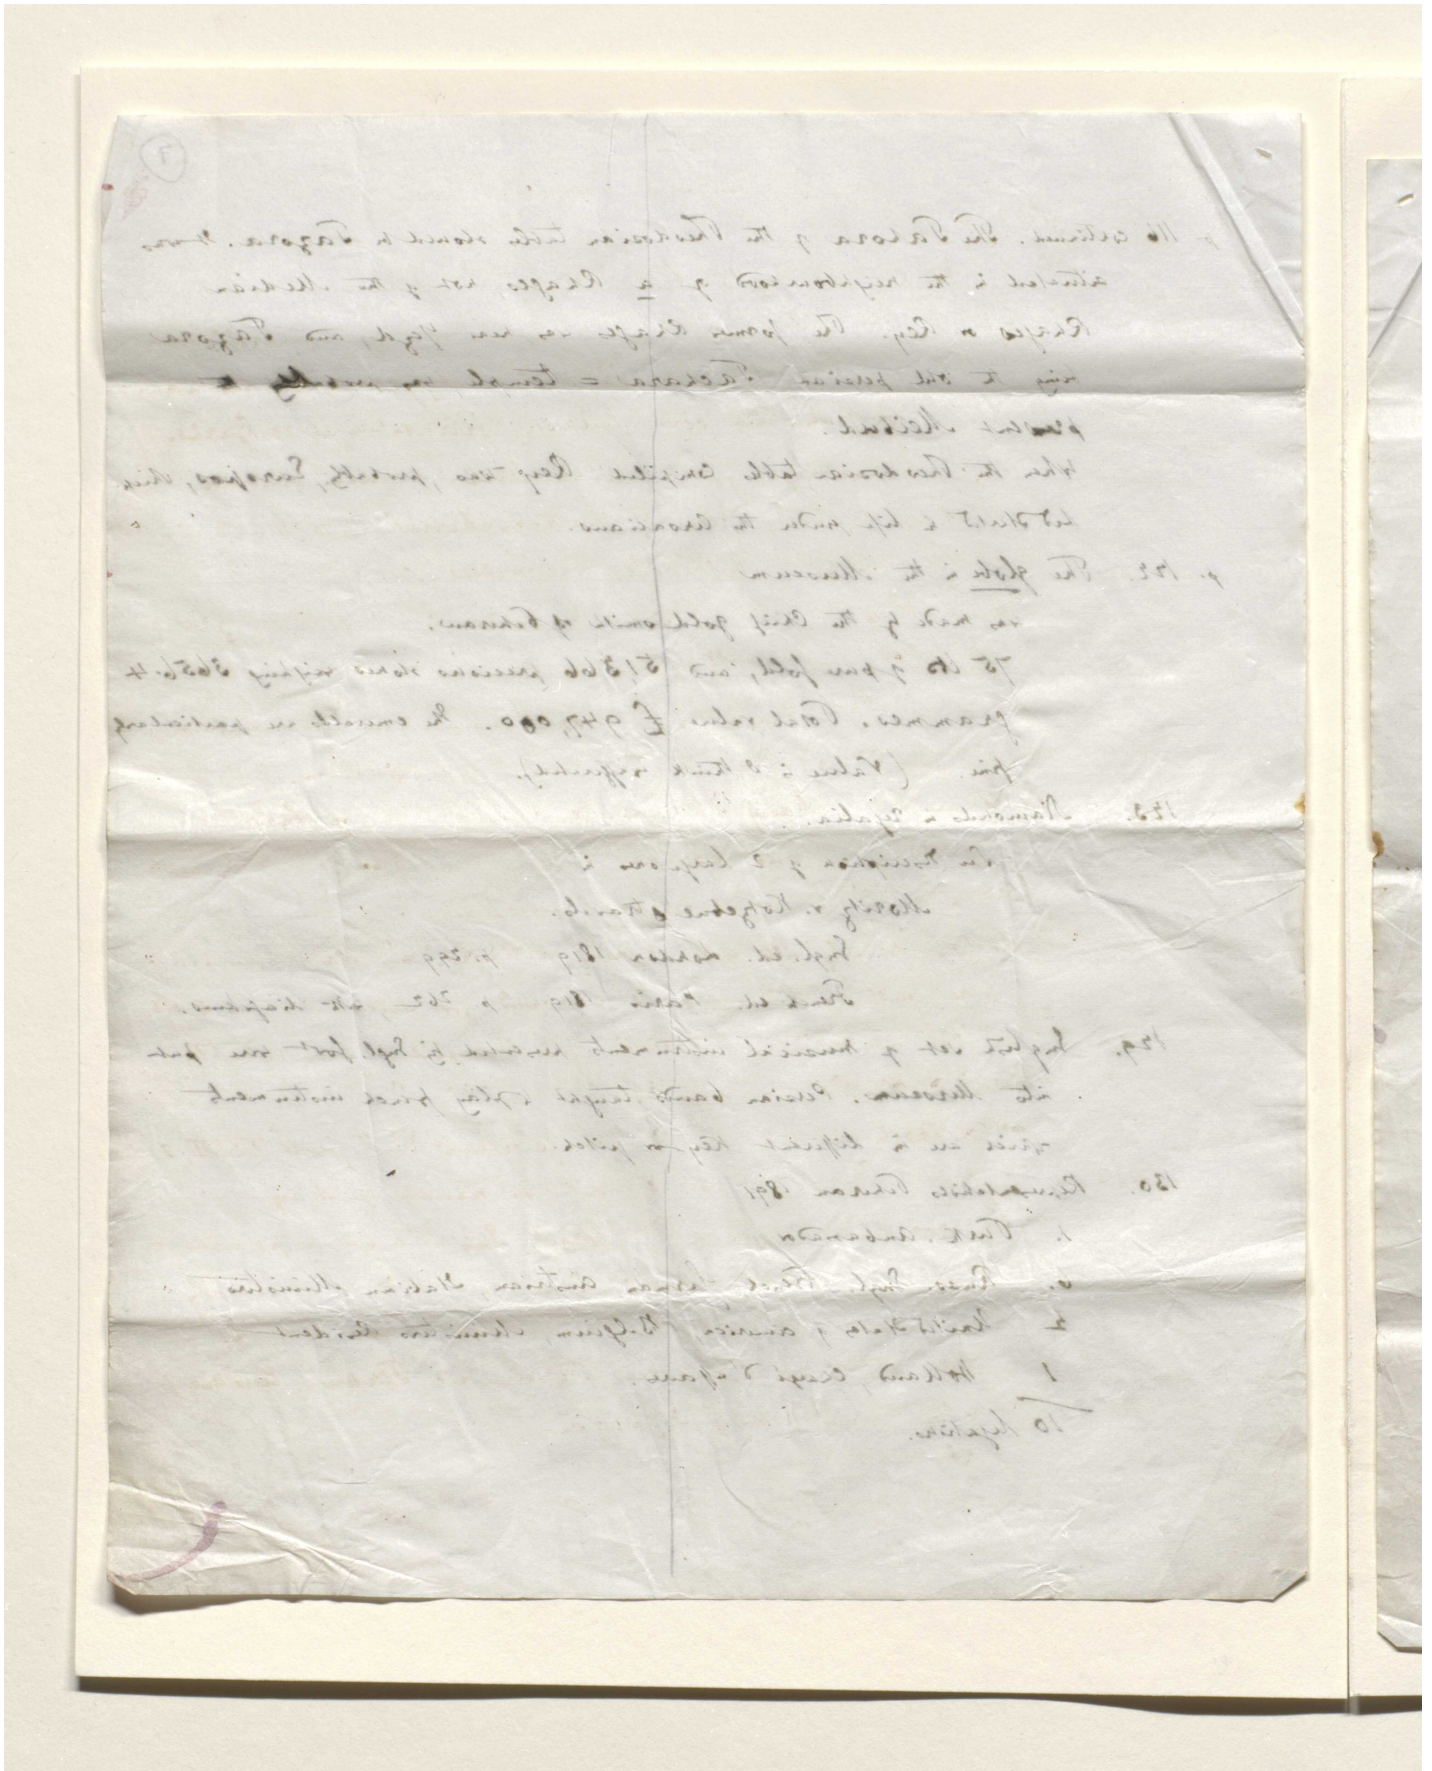 7
p. 116 continued. The Tahora of the Theodosian table should be Tazora. It was
situated in the neighbourhood of a Rhages, not of the Median
Rhages or Rey. The former Rhages was near Yezd, and Tazora
being the old persian Tachara = temple, was probably the
present Meibud.
When the Theodosian table compiled Rey was, probably, Europos, which
had started to life under the Arsacians.
p. 122. The globe in the Museum
was made by the chief goldsmith of Teheran.
75 lbs of pure gold, and 51,366 precious stones weighing 3656.4
grammes. Total value £947,000. The emeralds are particularly
fine. (Value is I think exaggerated).
123. Diamonds in regalia.
For description of 2 large ones in
Moritz v. Kotzebue's travels.
Engl. ed. London 1819 p. 299
French ed. Paris 1819 p. 262, with diagrams.
129. English set of musical instruments presented by Engl. Govt were put
into Museum. Persian bands taught to play french instruments
which are in different key or pitch.
130. Representatives Teheran 1891
1. Turk. Ambassador
6. Russ. Engl. French, German, Austrian, Italian Ministers
2 United States of America, Belgium, Ministers Resident
1 Holland, Chargé d'affaires.
10 Legations.